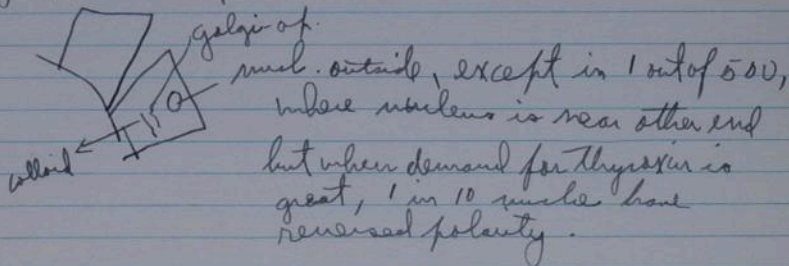 golgi ap.
nucl. outside, except in 1 out of 500,
where nucleus is near other end
colloid
but when demand for Thyroxin is
great, 1 in 10 nuclei have
reversed polarity.